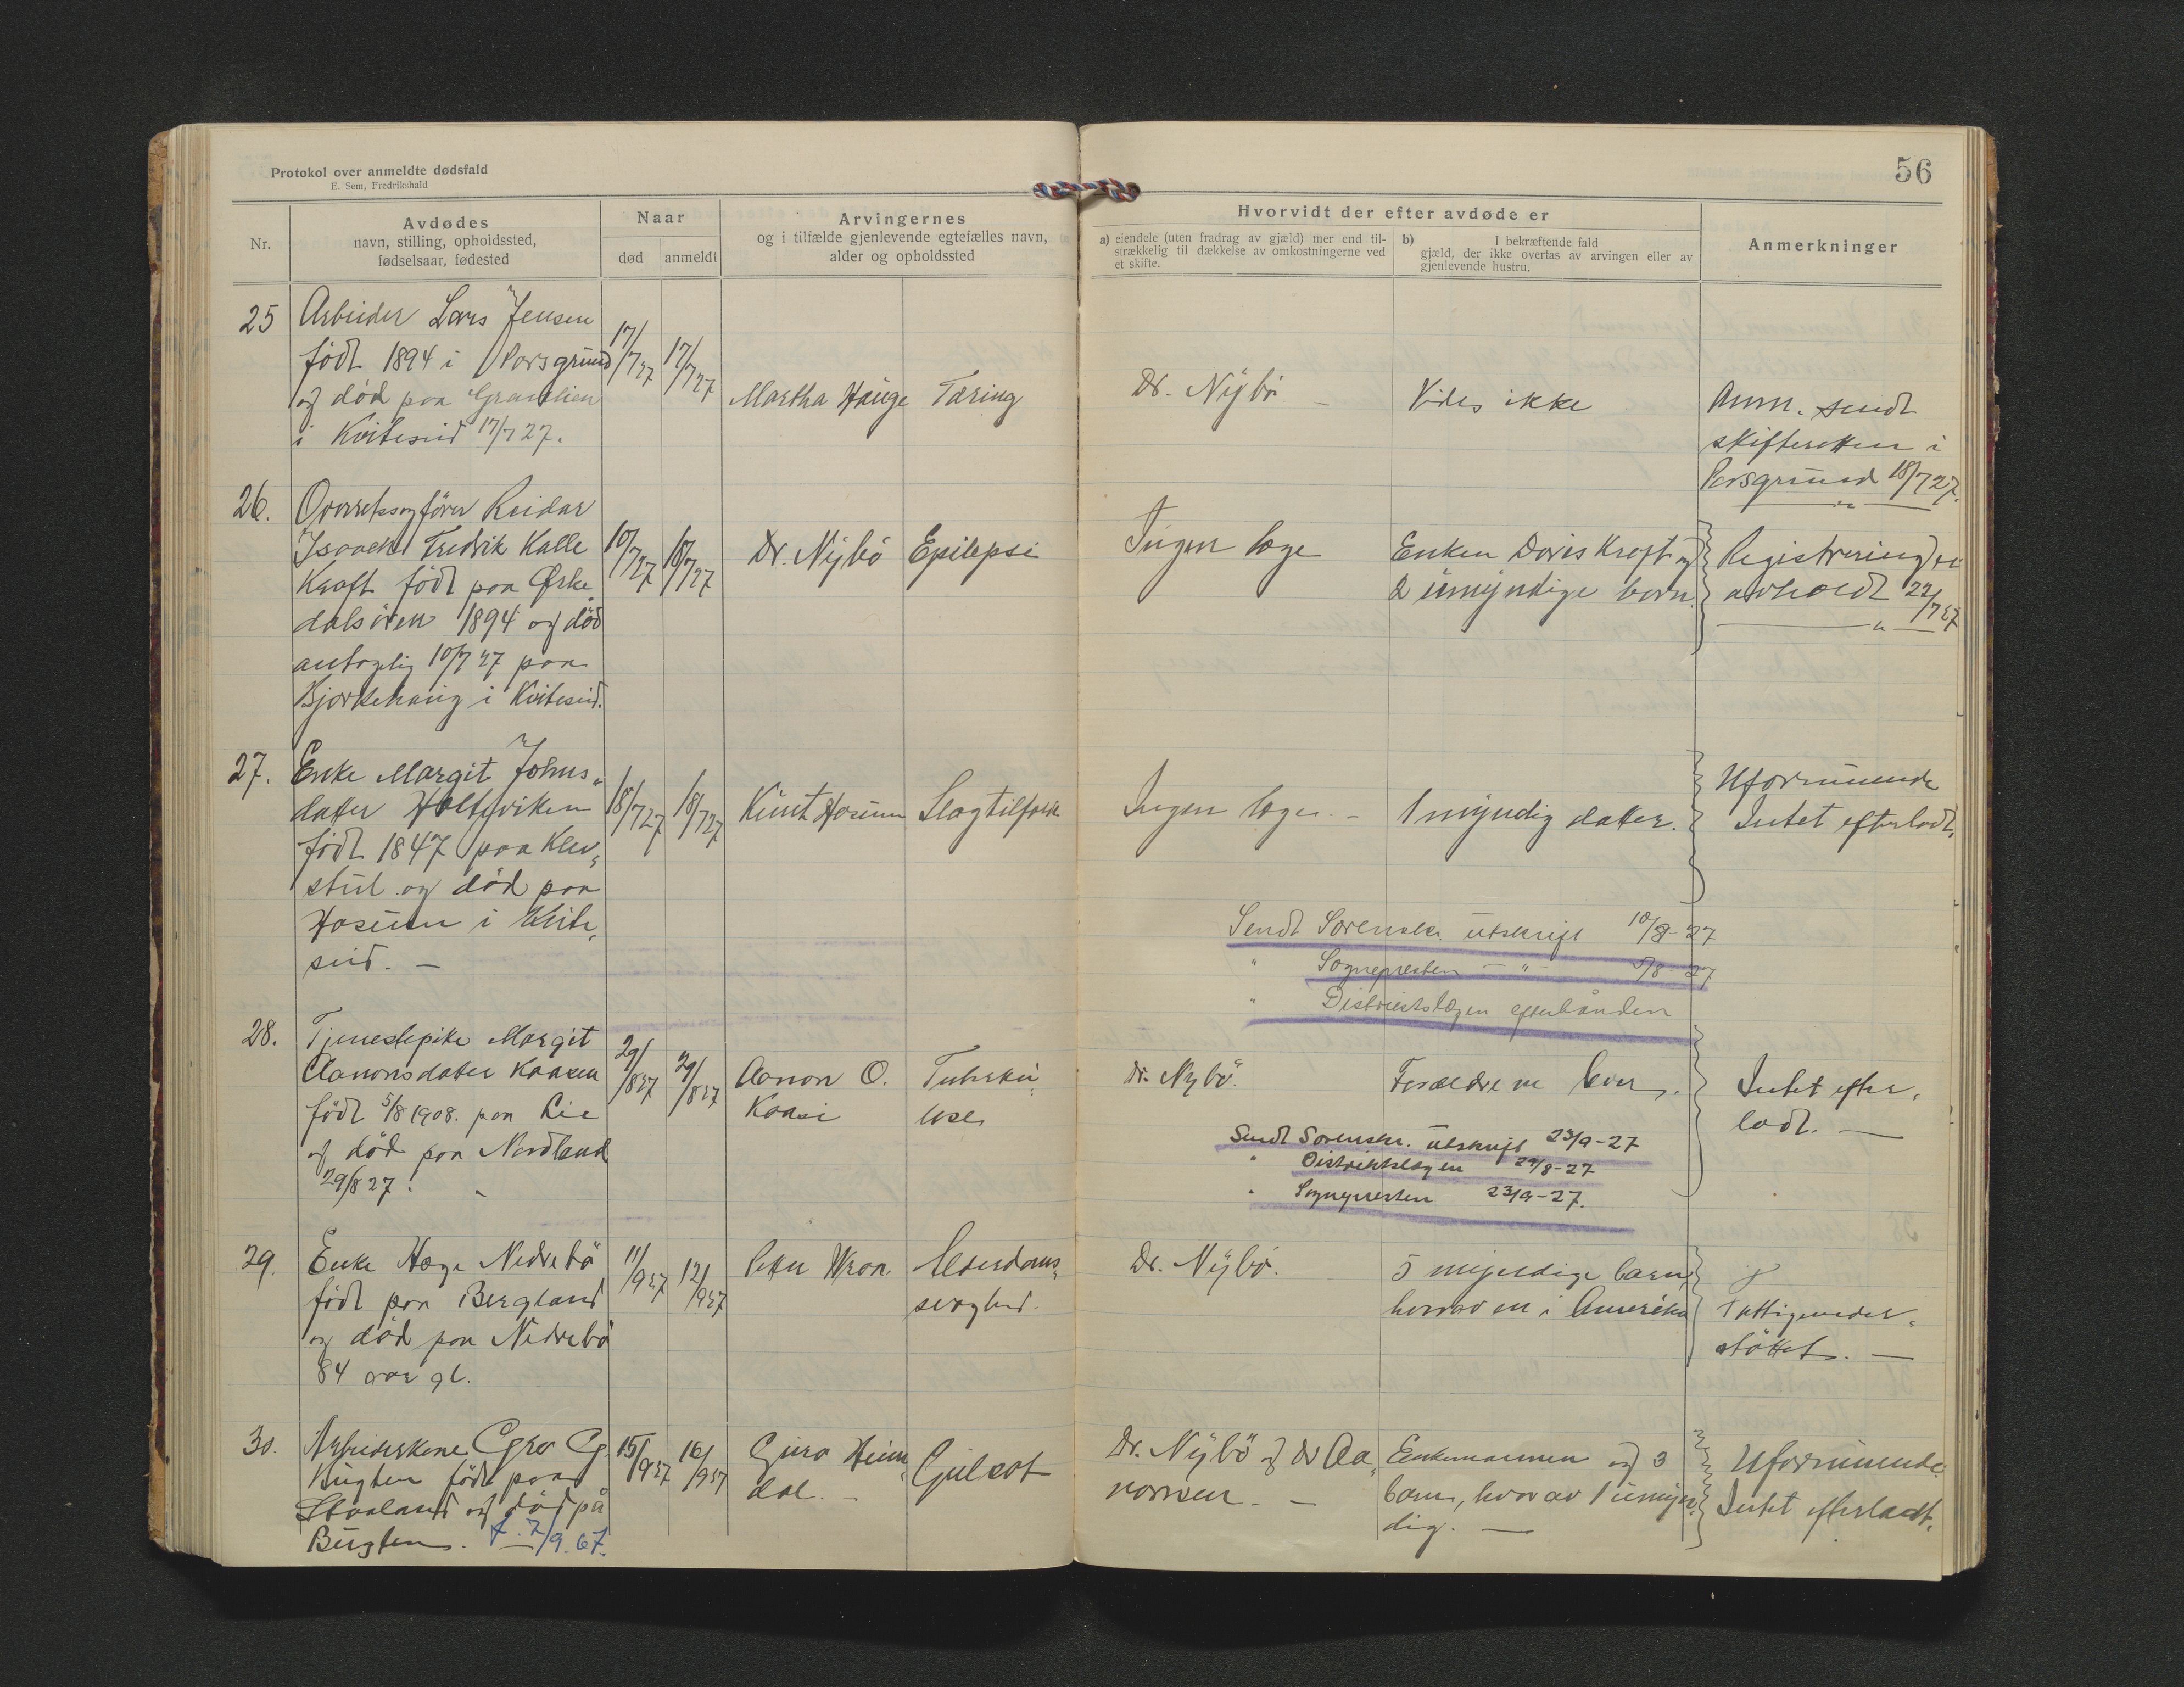 Protokol over anmeldte dødsfald
E. Sem, Fredrikshald
56
Nr.
Avdødes
navn, stilling, opholdssted,
fødselsaar, fødested
Naar
død
anmeldt
Arvingernes
og i tilfælde gjenlevende egtefælles navn,
alder og opholdssted
Hvorvidt der efter avdøde er
a) eiendele (uten fradrag av gjæld) mer end til-
strækkelig til dækkelse av omkostningerne ved
et skifte.
b) I bekræftende fald
gjæld, der ikke overtas av arvingen eller av
gjenlevende hustru.
Anmerkninger
25
Arbeider Lars Jensen
født 1894 i Porsgrund
og død paa
i Kviteseid 17/7 27.
17/7 27
17/7 27
Martha Hauge
Tæring
Dr. Nybö. -
Vides ikke
Anm. sendt
skifteretten i
Porsgrund 18/7 27.
26.
Overretssagfører Reidar
Isaach Fredrik Kalle
Kraft født paa Orke
dalsören 1894 og död
antagelig 10/7 27 paa
Bjørkehaug i Kviteseid.
10/7 27
18/7 27
Dr. Nybö
Epilepsi
Ingen læge
Enken Doris Kraft og
2 umyndige børn.
Registrering
avholdt 22/7 27
27.
Enke Margit Johns-
datter Holtsviken
født 1847 paa Klev-
stul og död paa
Hosum i Kvite-
seid. -
18/7 27
18/7 27
Knut Hosum
Slagtilfælde
Ingen læge. -
1 myndig datter.
Uformuende
Intet efterladt.
Sendt Sorenskr. utskrift 10/8-27
" Sognepresten - " - 5/8 27
" Distriktslægen efterhånden
28.
Tjenestepike Margit
Aanonsdatter Kaasen
født 5/8 1908. paa Lie
og död paa Nordland
29/8 27.
29/8 27
29/8 27
Aanon O.
Kaasi
Tuberku-
lose
Dr. Nybö.
Forældrene lever.
Intet efter-
ladt. -
Sendt Sorenskr. utskrift 23/9-27
" Distriktslægen 29/8-27
" Sognepresten 23/9-27.
29.
Enke Hæge Nedrebö
født paa Bergland
og død paa Nedrebö
84 aar gl.
11/9 27
12/9 27
Alderdoms-
svaghed.
Dr. Nybö.
5 myndige barn,
hvorav en i Amerika
Fattigunder-
støttet. -
30.
Arbeiderkone Gro G.
Bugten født paa
Straaland og död på
Bugten. f. 7/9.67.
15/9 27
16/9 27
Gjuro Heim-
dal. -
Gulsot
Dr. Nybö og Dr Aa-
norsen. -
Enkemannen og 3
barn, hvorav 1 umyn-
dig. -
Uformuende.
Intet efterladt.